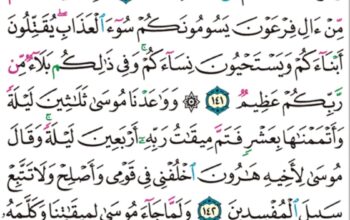 مِّنْ ءَالِ فِرْعَوْنَ يَسُومُونَكُمْ سُوٓءَ ٱلْعَذَابِ يُقَتِّلُونَ
أَبْنَآءَكُمْ وَيَسْتَحْيُونَ نِسَآءَكُمْ ۚ وَفِى ذَٰلِكُم بَلَآءٌ مِّن
رَّبِّكُمْ عَظِيمٌ ١٤١ ۞ وَوَٰعَدْنَا مُوسَىٰ ثَلَٰثِينَ لَيْلَةً
وَأَتْمَمْنَٰهَا بِعَشْرٍ فَتَمَّ مِيقَٰتُ رَبِّهِۦٓ أَرْبَعِينَ لَيْلَةً ۚ وَقَالَ
مُوسَىٰ لِأَخِيهِ هَٰرُونَ ٱخْلُفْنِى فِى قَوْمِى وَأَصْلِحْ وَلَا تَتَّبِعْ
سَبِيلَ ٱلْمُفْسِدِينَ ١٤٢ وَلَمَّا جَآءَ مُوسَىٰ لِمِيقَٰتِنَا وَكَلَّمَهُۥ